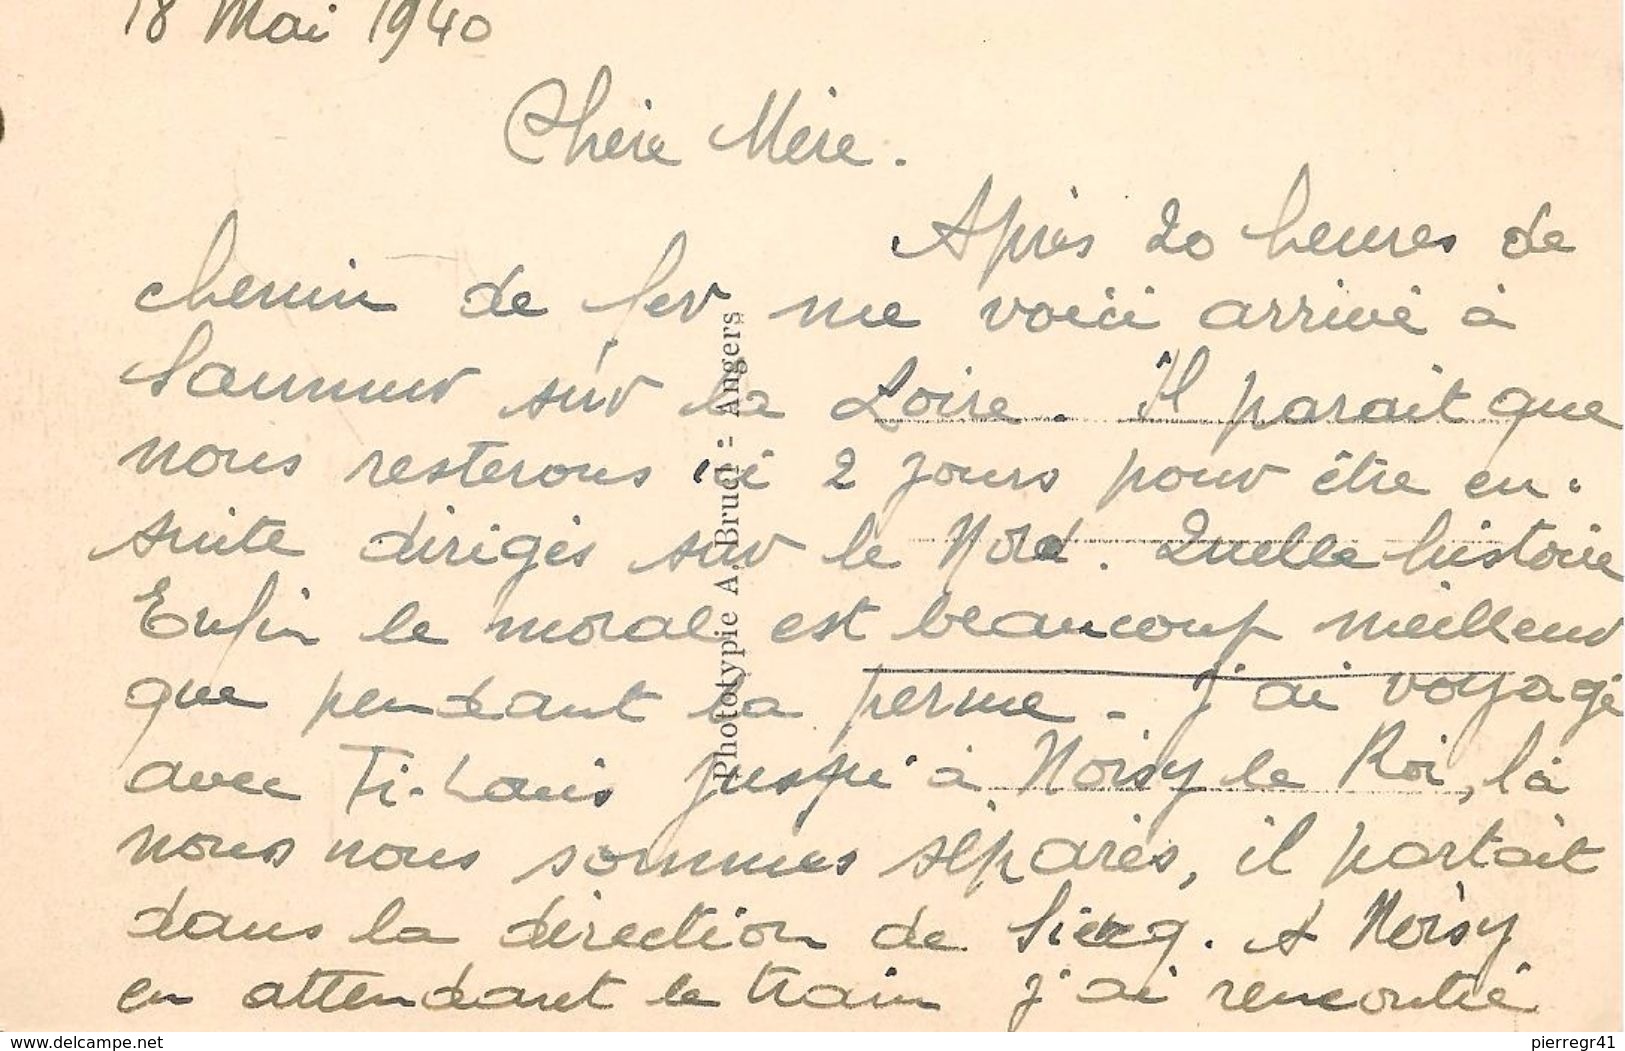 18 Mai 1940
Chère Mère.
Après 20 heures de
chemin de fer me voici arrivé à
Saumur sur la Loire. Il parait que
nous resterons ici 2 jours pour être en-
suite dirigés sur le Nord. Quelle histoire
Enfin le moral est beaucoup meilleur
que pendant la perme. J'ai voyagé
avec Ti-Louis jusqu'à Noisy le Roi, là
nous nous sommes séparés, il partait
dans la direction de . A Noisy
en attendant le train j'ai rencontré
Phototypie A. Bruel - Angers
www.delcampe.net
pierregr41